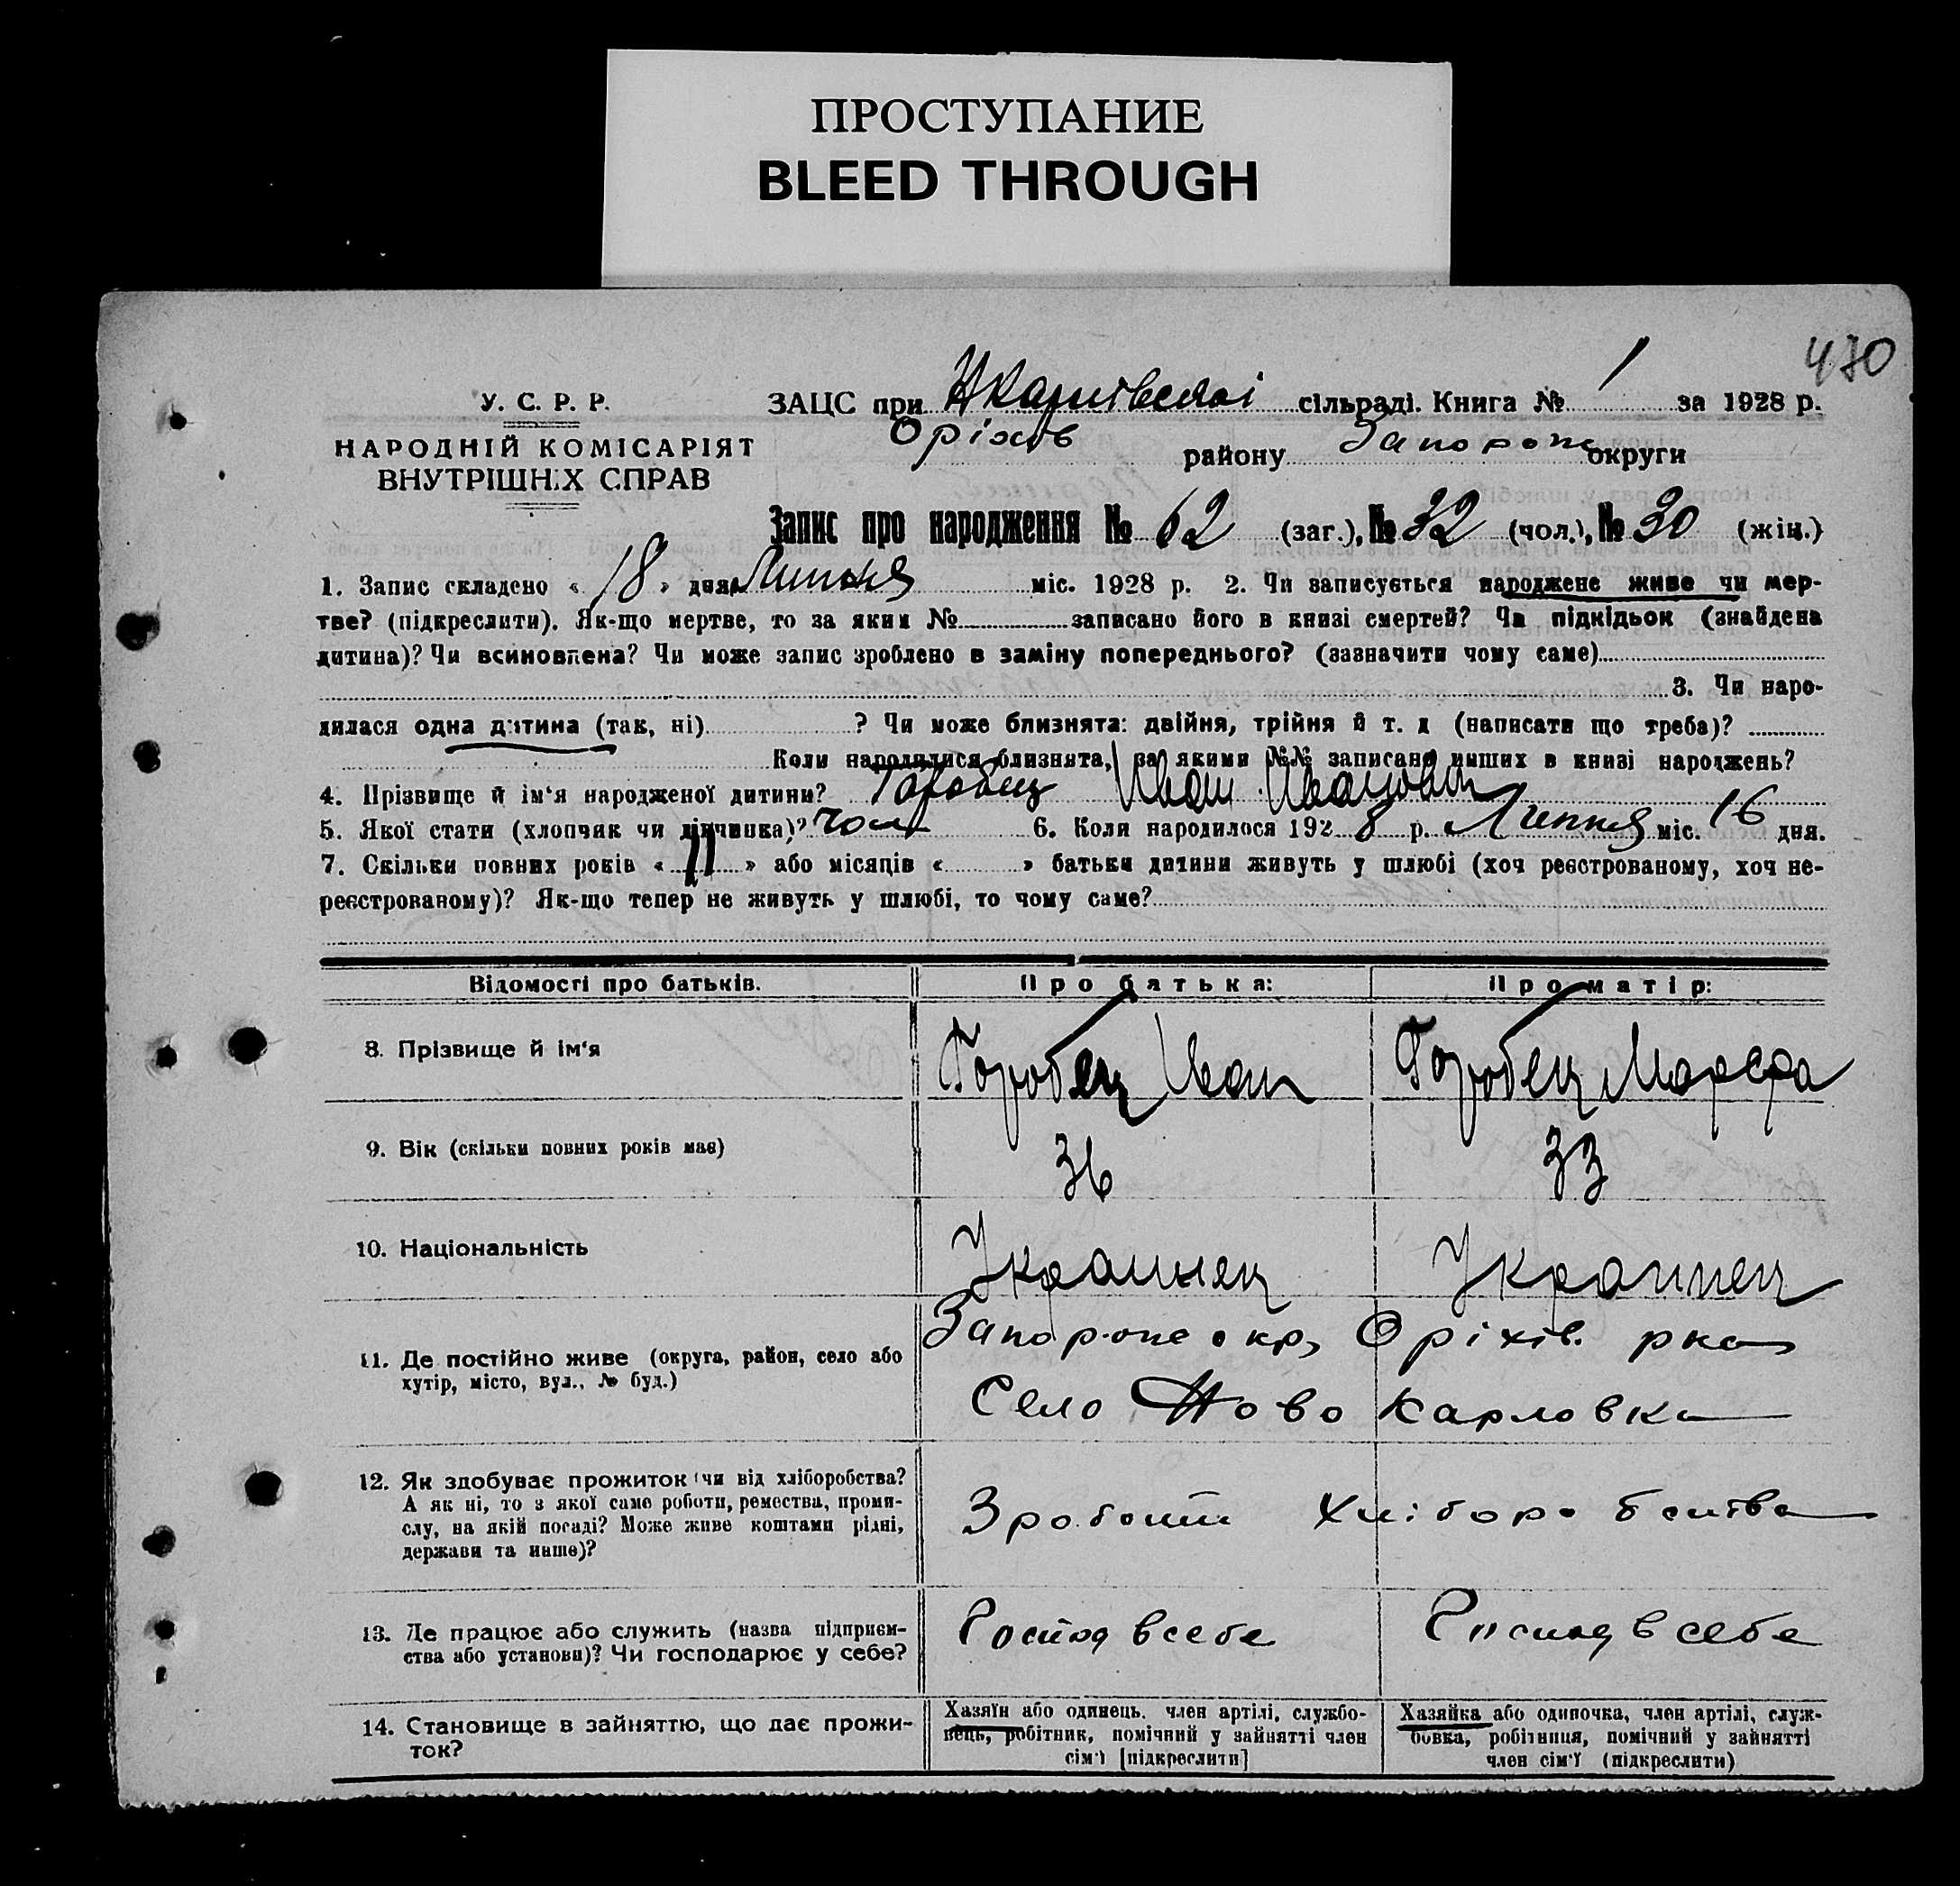 ПРОСТУПАНИЕ
BLEED THROUGH
470
У. С. Р. Р.
НАРОДНІЙ КОМІСАРІЯТ
ВНУТРІШНІХ СПРАВ
ЗАЦС при сільраді. Книга № 1 за 1928 р.
Оріхів району Запорож округи
Запис про народження № 62 (заг.), № 32 (чол.), № 30 (жін.)
1. Запис складено « 18 » дня Липня міс. 1928 р. 2. Чи записується народжене живе чи мер-
тве? (підкреслити). Як-що мертве, то за яким № записано його в книзі смертей? Чи підкідьок (знайдена
дитина)? Чи всиновлена? Чи може запис зроблено в заміну попереднього? (зазначити чому саме)
3. Чи наро-
дилася одна дитина (так, ні) ? Чи може близнята: двійня, трійня й т. д (написати що треба)?
Коли народилися близнята, за якими №№ записано инших в книзі народжень?
4. Прізвище й ім‘я народженої дитини? Горобец Иван Иванович
5. Якої стати (хлопчик чи дівчинка)? чол 6. Коли народилося 192 8 р. Липня міс. 16 дня.
7. Скільки повних років « 11 » або місяців « » батьки дитини живуть у шлюбі (хоч реєстрованому, хоч не-
реєстрованому)? Як-що тепер не живуть у шлюбі, то чому саме?
Відомості про батьків. Про батька: Про матір:
8. Прізвище й ім‘я Горобец Иван Горобец Марфа
9. Вік (скільки повних років має) 36 33
10. Національність Украинец Украинец
11. Де постійно живе (округа, район, село або
хутір, місто, вул., № буд.)
Запорож окр, Оріхів.
Село Ново Карловка
12. Як здобуває прожиток (чи від хліборобства?
А як ні, то з якої саме роботи, ремества, проми-
слу, на якій посаді? Може живе коштами рідні,
держави та инше)?
Зроботи Хліборобства
13. Де працює або служить (назва підприєм-
ства або установи)? Чи господарює у себе?
Господ в себе Господ в себе
14. Становище в зайняттю, що дає прожи-
ток?
Хазяїн або одинець. член артілі, службо-
вець, робітник, помічний у зайнятті член
сім‘ї [підкреслити]
Хазяйка або одиночка, член артілі, служ-
бовка, робітниця, помічний у зайнятті
член сім‘ї (підкреслити)